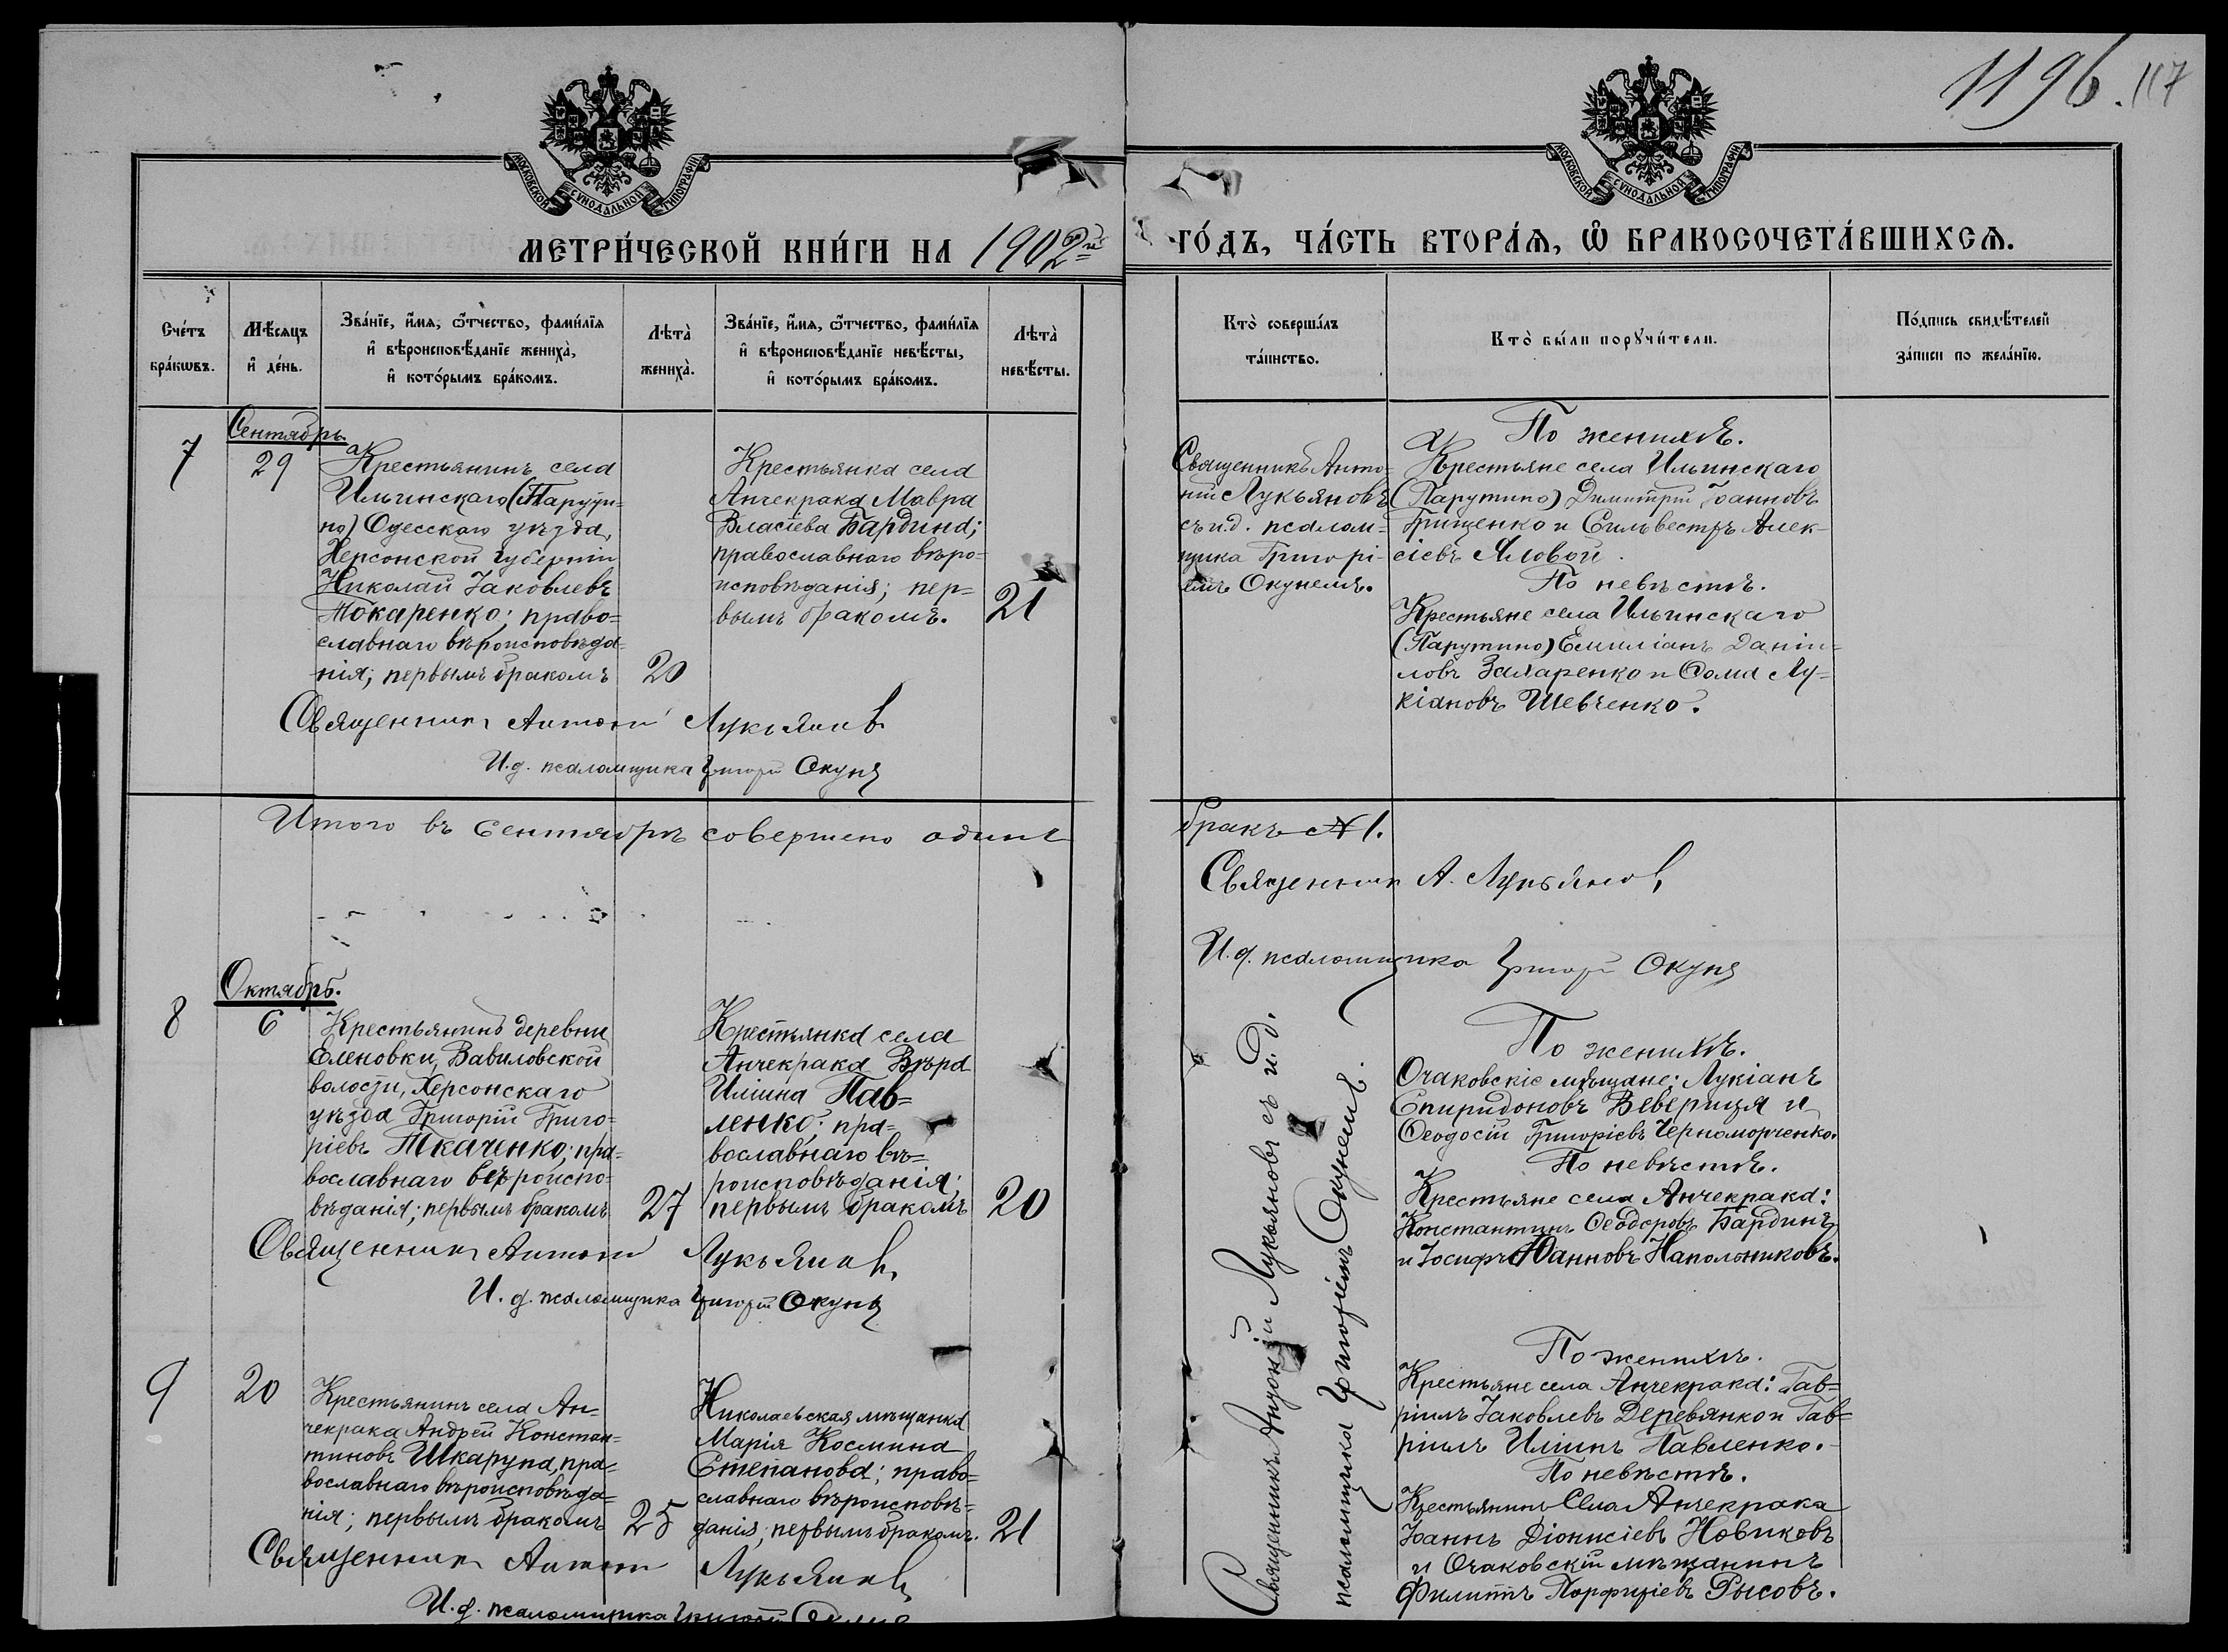 1196. 117
МОСКОВСКОЙ СѴНОДАЛЬНОЙ ТИПОГРАФІИ
МОСКОВСКОЙ СѴНОДАЛЬНОЙ ТИПОГРАФІИ
МЕТРИ́ЧЕСКОЙ КНИ́ГИ НА 1902й
ГО́ДЪ, ЧА́СТЬ ВТОРА́Я, Ѽ БРАКОСОЧЕТА́ВШИХСЯ.
Сче́тъ
бра́кѡвъ.
Мѣ́сяцъ
и҆ де́нь.
Зва́нїе, и҆́мя, ѻ҆́тчество, фами́лїя
и҆ вѣроисповѣ́данїе жениха̀,
и҆ кото́рымъ бра́комъ.
Лѣта̀
жениха̀.
Зва́нїе, и҆́мя, ѻ҆́тчество, фами́лїя
и҆ вѣроисповѣ́данїе невѣ́сты,
и҆ кото́рымъ бра́комъ.
Лѣта̀
невѣ́сты.
Кто̀ соверша́лъ
та́инство.
Кто̀ бы́ли порꙋчи́тели.
По́дпись свидѣ́телей
за́писи по жела́нїю.
Сентябрь.
7
29
Крестьянинъ села
Ильинскаго (Парути-
но) Одесскаго уѣзда,
Херсонской губерніи
Николай Іаковлевъ
Токаренко; право=
славнаго вѣроисповѣда=
нія; первымъ бракомъ
20
Крестьянка села
Анчекрака Мавра
Власіева Бардина;
православнаго вѣро=
исповѣданія; пер=
вымъ бракомъ.
21
Священникъ Антоній Лукьяновъ
И.д. псаломщика Григорій Окунь
Священникъ Анто-
ній Лукьяновъ
съ и.д. псалом=
щика Григорі-
емъ Окунемъ.
По женихѣ.
Крестьяне села Ильинскаго
(Парутино) Димитрій Іоанновъ
Грищенко и Сильвестръ Алек-
сіевъ Яловой.
По невѣстѣ.
Крестьяне села Ильинскаго
(Парутино) Емиліанъ Даніи=
ловъ Захаренко и Ѳома Лу=
кіановъ Шевченко.
Итого въ Сентябрѣ совершено одинъ
бракъ №1.
Священникъ А. Лукьяновъ
И.д. псаломщика Григорій Окунь
Октябрь.
8
6
Крестьянинъ деревни
Еленовки, Вавиловской
волости, Херсонскаго
уѣзда Григорій Григо=
ріевъ Ткаченко; пра=
вославнаго вѣроиспо=
вѣданія; первымъ бракомъ
27
Крестьянка села
Анчекрака Вѣра
Иліина Пав=
ленко; пра=
вославнаго вѣ=
роисповѣданія;
первымъ бракомъ
20
Священникъ Антоній Лукьяновъ
И.д. псаломщика Григорій Окунь
Священникъ Антоній Лукьяновъ съ и.д.
псаломщика Григоріемъ Окунемъ.
По женихѣ.
Очаковскіе мѣщане: Лукіанъ
Спиридоновъ Веверица и
Ѳеодосій Григоріевъ Черноморченко.
По невѣстѣ.
Крестьяне села Анчекрака:
Константинъ Ѳеодоровъ Бардинъ
и Іосифъ Іоанновъ Напольниковъ.
9
20
Крестьянинъ села Ан-
чекрака Андрей Констан=
тиновъ Шкарупа, пра=
вославнаго вѣроисповѣда=
нія; первымъ бракомъ
25
Николаевская мѣщанка
Марія Космина
Степанова; право=
славнаго вѣроисповѣ=
данія; первымъ бракомъ.
21
Священникъ Антоній Лукьяновъ
И.д. псаломщика Григорій Окунь
По женихѣ.
Крестьяне села Анчекрака: Гав=
ріилъ Іаковлевъ Деревянко и Гав=
ріилъ Иліинъ Павленко.
По невѣстѣ.
Крестьянинъ Села Анчекрака
Іоаннъ Діонисіевъ Новиковъ
и Очаковскій мѣщанинъ
Филиппъ Порфиріевъ Рысовъ.